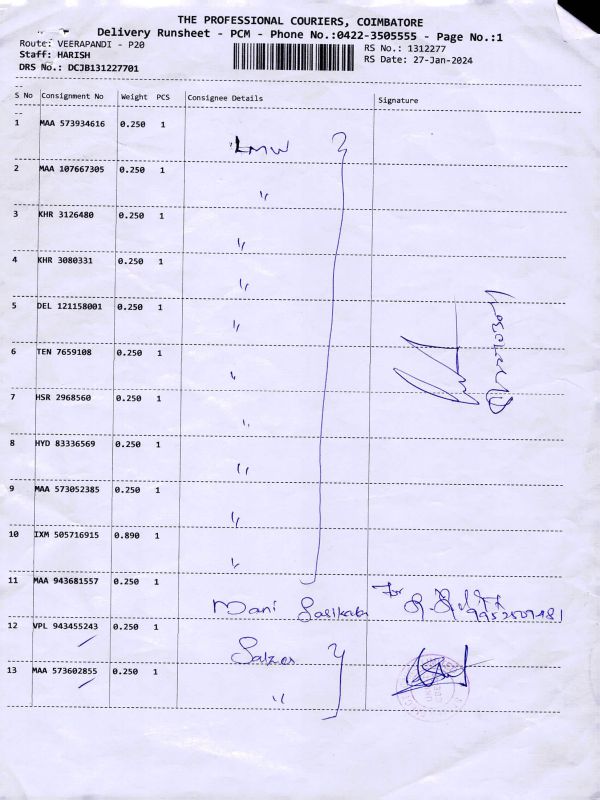 THE PROFESSIONAL COURIERS, COIMBATORE
Delivery Runsheet - PCM - Phone No.:0422-3505555 - Page No.:1
Route: VEERAPANDI - P20
RS No.: 1312277
Staff: HARISH
RS Date: 27-Jan-2024
DRS No.: DCJB131227701
S No Consignment No Weight PCS Consignee Details Signature
1 MAA 573934616 0.250 1
LMW
2 MAA 107667305 0.250 1
"
3 KHR 3126480 0.250 1
"
4 KHR 3080331 0.250 1
"
5 DEL 121158001 0.250 1
"
6 TEN 7659108 0.250 1
"
7 HSR 2968560 0.250 1
"
8 HYD 83336569 0.250 1
"
9 MAA 573052385 0.250 1
"
10 IXM 505716915 0.890 1
"
11 MAA 943681557 0.250 1
Mani For
12 VPL 943455243 0.250 1
Salzer
13 MAA 573602855 0.250 1
"